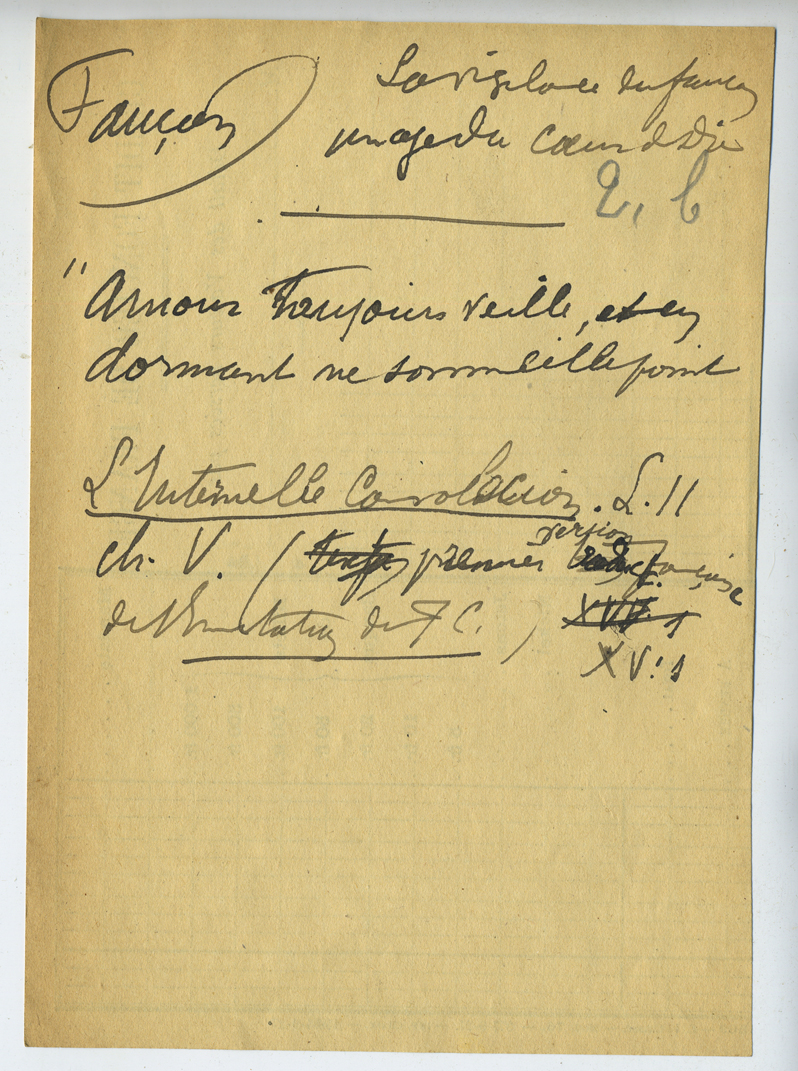 Faucon
La vigilance du faucon
image du Cœur de Dieu
2, 6
"Amour toujours veille, et en
dormant ne sommeille point
L'Internelle Consolacion. L. II
ch. V. ( première version française
de l'Imitation de J C. )
XV. 1
XV: 1